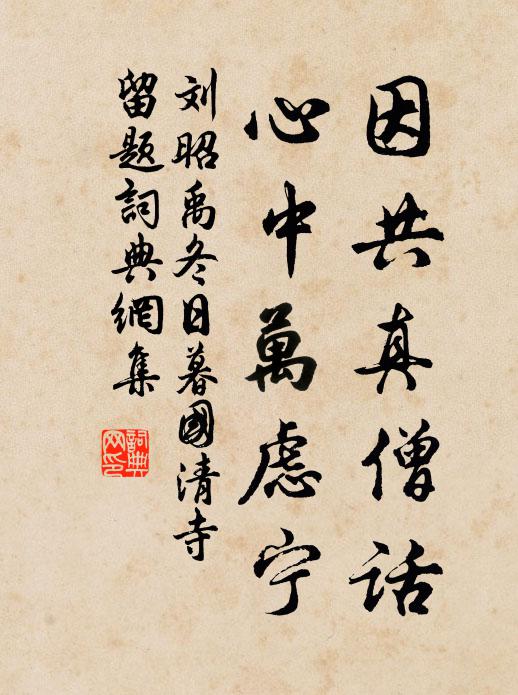 因共真僧话
心中萬慮宁
刘昭禹冬日暮國清寺
留题詞典網集
詞典
网印